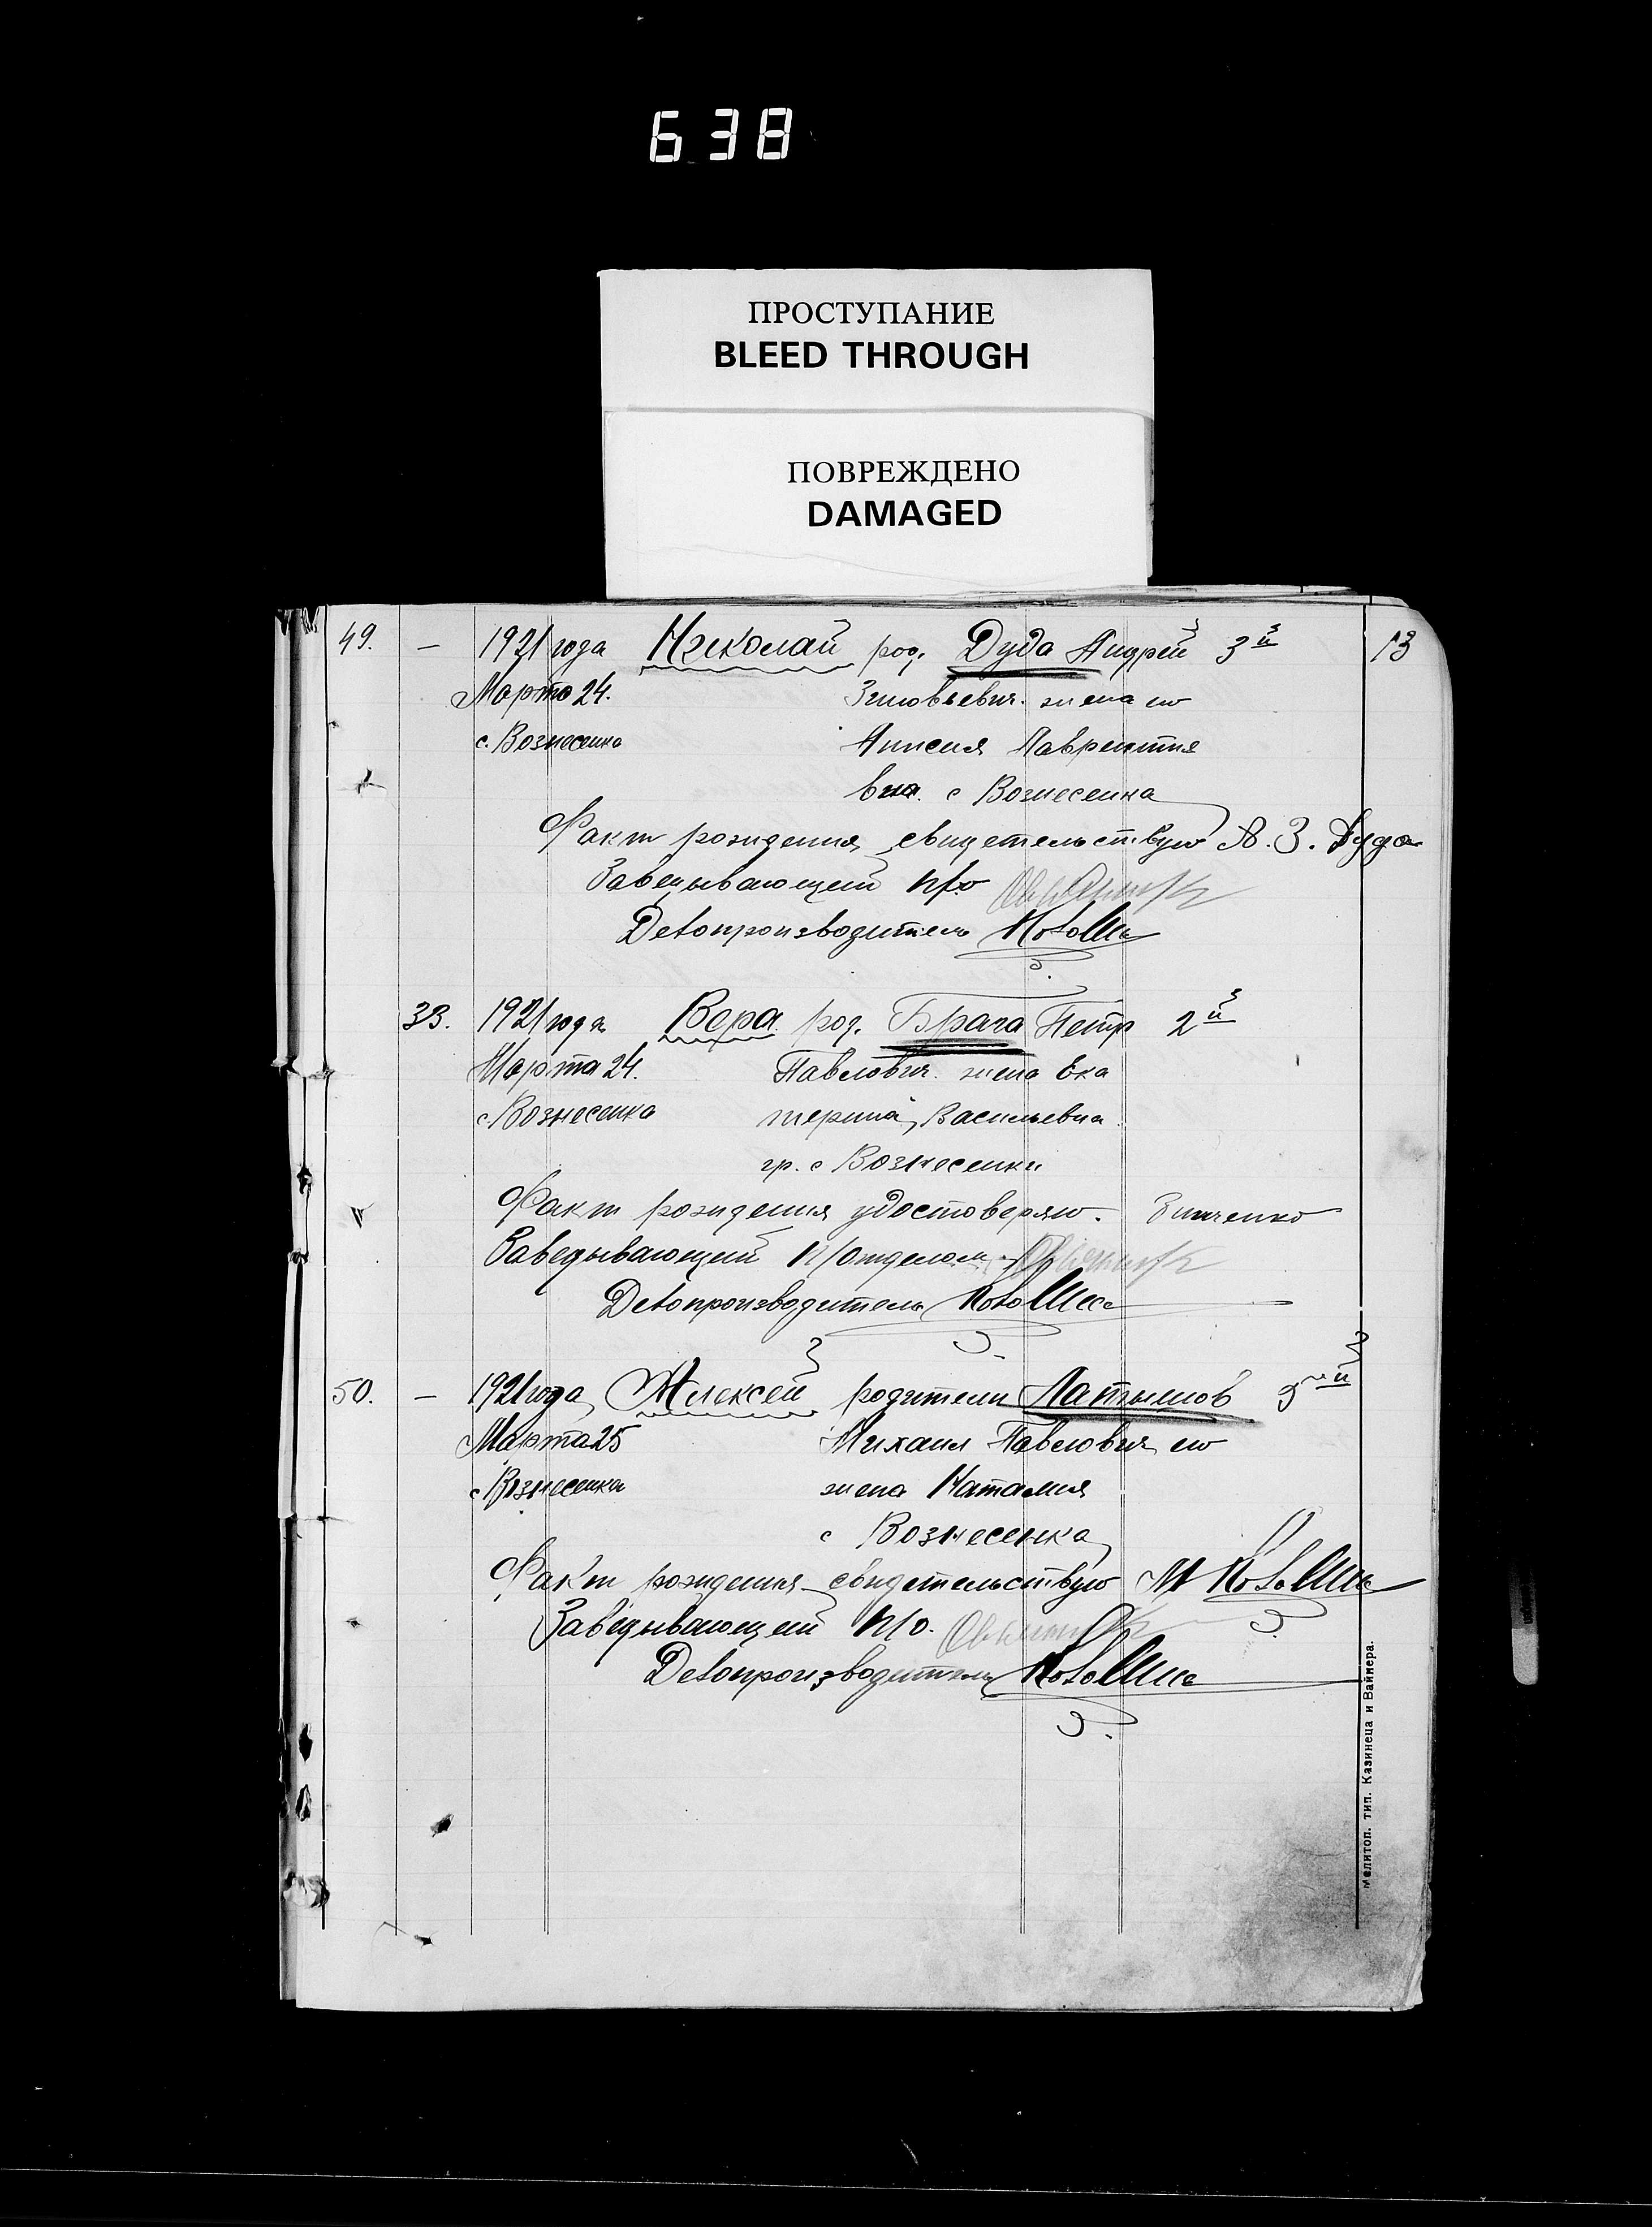 638
ПРОСТУПАНИЕ
BLEED THROUGH
ПОВРЕЖДЕНО
DAMAGED
49. — 1921 года Николай род. Дуда Андрей 3й 13
Марта 24. Зиновьевич. жена его
с. Вознесенка Анисия Лаврентие
вна. с Вознесенка
Факт рождения свидетельствую А. З. Дуда
Заведывающий п/о
Делопроизводитель
33. 1921 года Вера род. Брага Петр 2й
Марта 24. Павлович. жена Ека
с Вознесенка терина Васильевна
гр. с Вознесенки
Факт рождения удостоверяю. Зинченко
Заведывающий п/отделом
Делопроизводитель
50. — 1921 года Алексей родители Латышов й
Марта 25 Михаил Павлович его
с Вознесенка жена Наталия
с Вознесенка
Факт рождения свидетельствую
Заведывающий п/о.
Делопроизводитель
Мелитоп. тип. Казинеца и Ваймера.